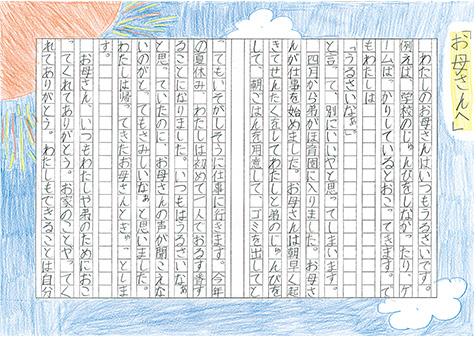 お母さんへ
わたしのお母さんはいつもうるさいです。
例えば、学校のじゅんびをしなかったり、ゲ
ームばっかりしているとおこってきます。で
もわたしは
「うるさいなぁ。」
と言って、別にいいやと思ってしまいます。
四月から弟がほ育園に入りました。お母さ
んが仕事を始めました。お母さんは朝早く起
きてせんたくをしてわたしと弟のじゅんびを
して、朝ごはんを用意して、ゴミを出してと
ってもいそがしそうに仕事に行きます。今年
の夏休み、わたしは初めて一人でおるす番す
ることになりました。いつもはうるさいなぁ
と思っていたのに、お母さんの声が聞こえな
いのがとってもさみしいなぁと思いました。
わたしは帰ってきたお母さんとぎゅっとしま
す。
お母さん、いつもわたしや弟のためにおこ
ってくれてありがとう。お家のことやってく
れてありがとう。わたしもできることは自分